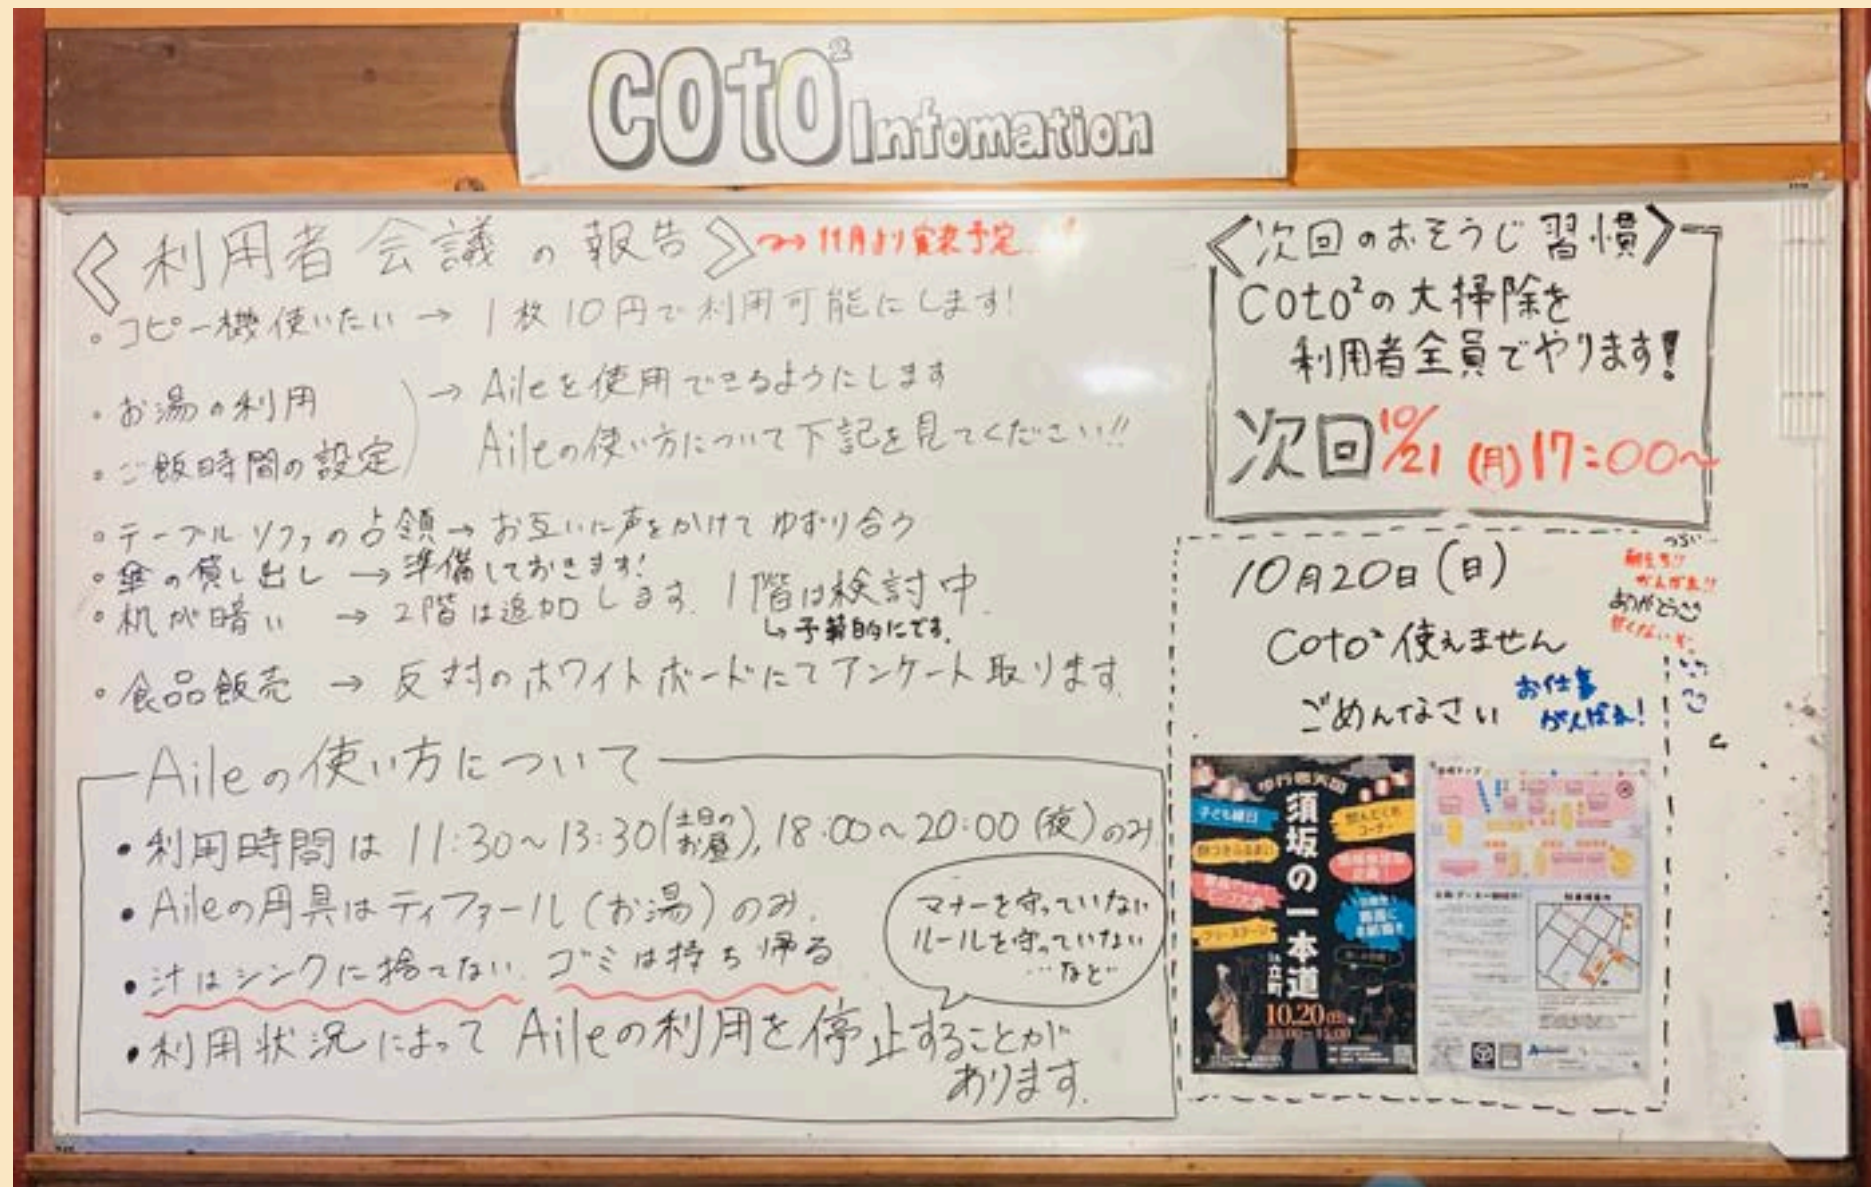 coto² Infomation
〈利用者会議の報告〉 → 11月より実装予定
・コピー機使いたい → 1枚10円で利用可能にします!
・お湯の利用
・ご飯時間の設定
→ Aileを使用できるようにします
Aileの使い方について下記を見てください!!
・テーブル ソファの占領 → お互いに声をかけて ゆずり合う
・傘の貸し出し → 準備しておきます!
・机が暗い → 2階は追加します. 1階は検討中.
↳予算的にです.
・食品販売 → 反対のホワイトボードにてアンケート取ります.
Aileの使い方について
・利用時間は 11:30~13:30(土日のお昼), 18:00~20:00 (夜)のみ
・Aileの用具はティファール(お湯)のみ.
・汁はシンクに捨てない. ゴミは持ち帰る
・利用状況によって Aileの利用を停止することが
あります.
マナーを守っていない
ルールを守っていない
…など
〈次回のおそうじ習慣〉
Coto²の大掃除を
利用者全員でやります!
次回 10/21 (月) 17:00~
10月20日(日)
Coto²使えません
ごめんなさい
お仕事
がんばれ!
つらい…
がんばれ!!
ありがとう
歩行者天国
須坂の一本道
in立町
子ども縁日
餅つきふるまい
フリーステージ
10.20
会場マップ